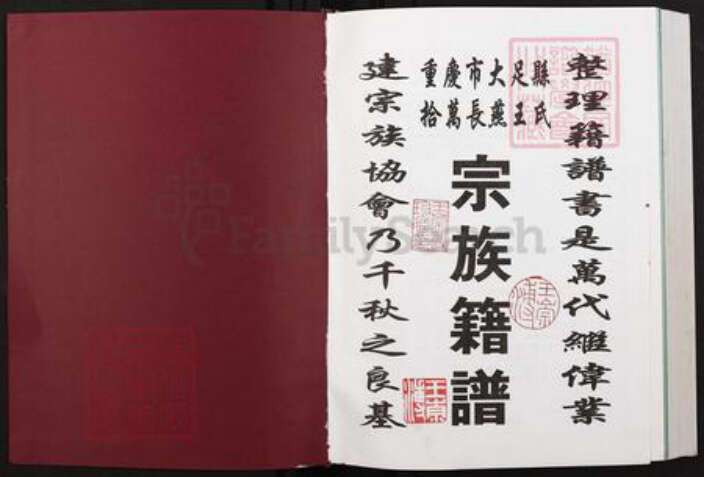 整理籍譜書是萬代繼偉業
重慶市大足縣
拾萬長燕王氏
宗族籍譜
建宗族協會乃千秋之良基
王宗
FamilySearch